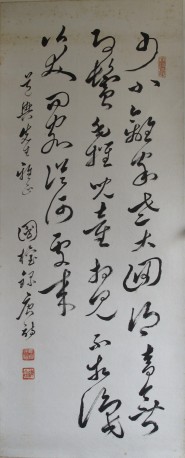 少小離家老大迴鄉音無
改鬢毛摧兒童相見不相識
笑問客從何處來
興先生雅正
國錄唐詩